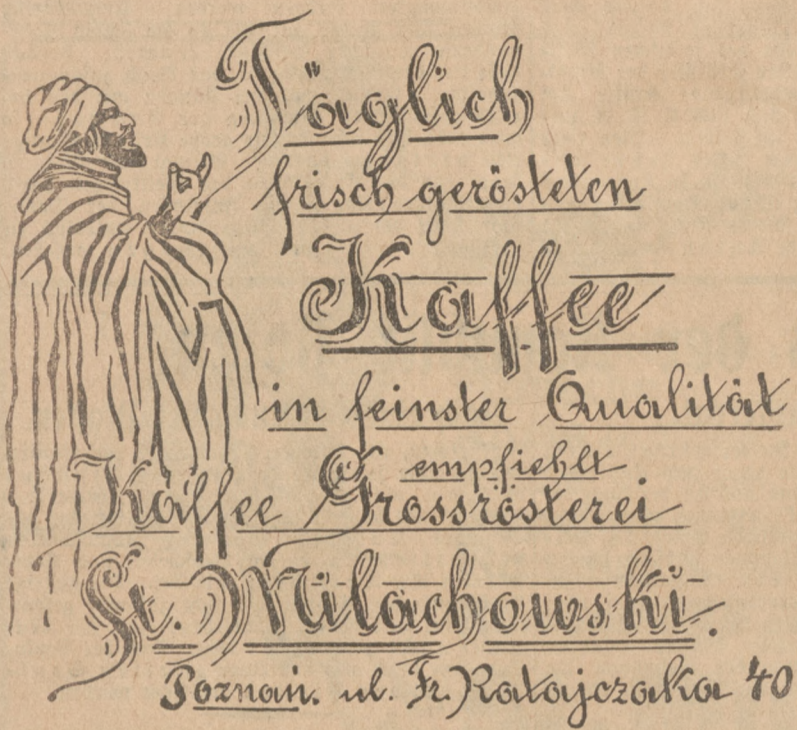 Täglich
frisch gerösteten
Kaffee
in feinster Qualität
empfiehlt
Kaffee Grossrösterei
St. Milachowski.
Poznań. ul. Fr. Ratajczaka 40